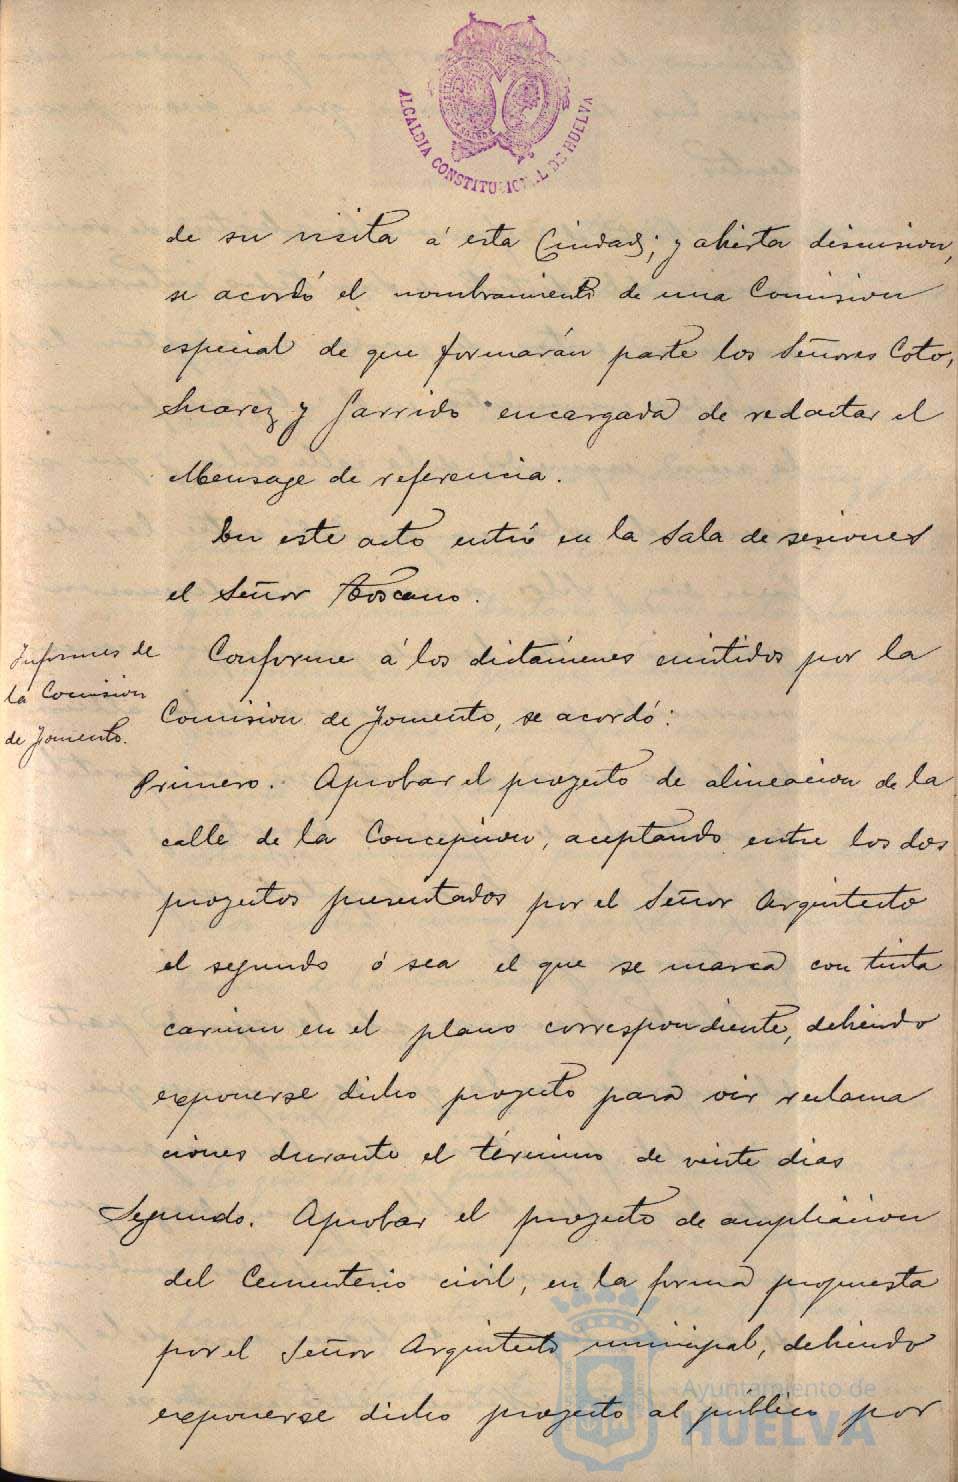 ALCALDIA CONSTITUCIONAL DE HUELVA
de su visita á esta Ciudad; y abierta discusion,
se acordó el nombramiento de una Comision
especial de que formarán parte los Señores Coto,
Suarez y Garrido encargada de redactar el
Mensage de referencia.
En este acto entró en la Sala de sesiones
el Señor Toscano.
Informes de
la Comision
de Fomento.
Conforme á los dictámenes emitidos por la
Comision de Fomento, se acordó:
Primero. Aprobar el proyecto de alineacion de la
calle de la Concepcion, aceptando entre los dos
proyectos presentados por el Señor Arquitecto
el segundo ó sea el que se marca con tinta
carmin en el plano correspondiente, debiendo
exponerse dicho proyecto para oir reclama
ciones durante el término de veinte dias
Segundo. Aprobar el proyecto de ampliacion
del Cementerio civil, en la forma propuesta
por el Señor Arquitecto municipal, debiendo
exponerse dicho proyecto al público por
Ayuntamiento de
HUELVA